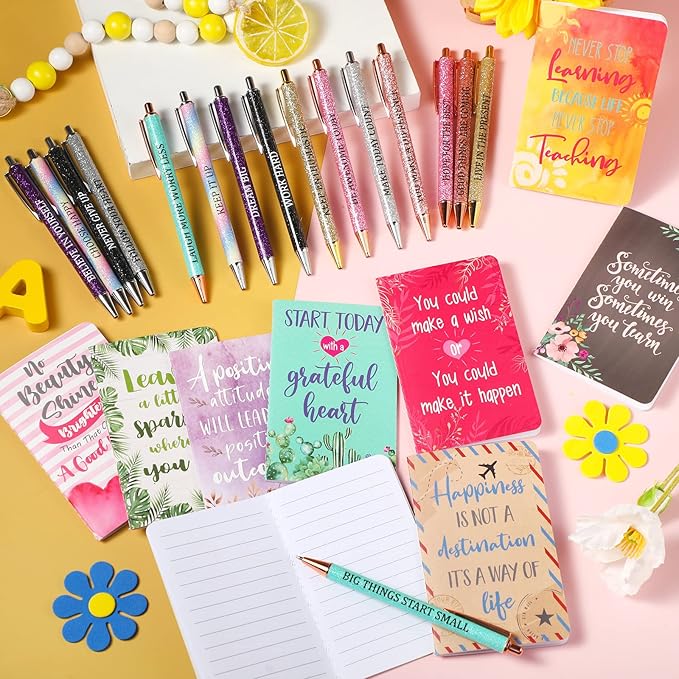 NEVER STOP
Learning
BECAUSE LIFE
NEVER STOP
Teaching
BELIEVE IN YOURSELF
CHOOSE HAPPY
NEVER GIVE UP
FOLLOW YOUR HEART
LAUGH MORE WORRY LESS
KEEP IT UP
DREAM BIG
WORK HARD
MAKE TODAY COUNT
GOOD THINGS ARE COMING
LIVE IN THE PRESENT
Sometimes
you win
Sometimes
you learn
No
Beauty
Shine
Brighte
Than That O
A Good
Leave
a litt
spar
where
you
A positiv
attitud
WILL LEAD
posit
outco
START TODAY
with a
grateful
heart
You could
make a wish
or
You could
make it happen
Happiness
IS NOT A
destination
IT'S A WAY OF
life
BIG THINGS START SMALL
A